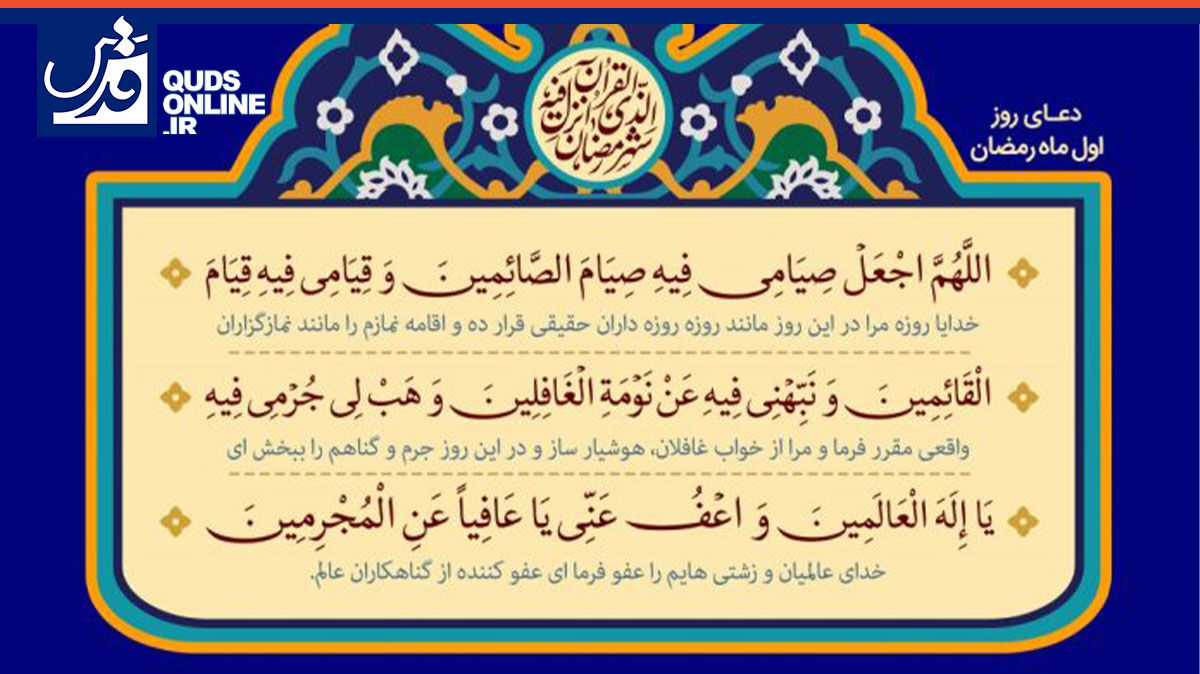 قدس
QUDS
ONLINE
.IR
شهر رمضان الذی انزل فیه القرآن
دعای روز
اول ماه رمضان
اللَّهُمَّ اجْعَلْ صِيَامِی فِيهِ صِيَامَ الصَّائِمِينَ وَ قِيَامِی فِيهِ قِيَامَ
خدایا روزه مرا در این روز مانند روزه روزه داران حقیقی قرار ده و اقامه نمازم را مانند نمازگزاران
الْقَائِمِينَ وَ نَبِّهْنِی فِيهِ عَنْ نَوْمَةِ الْغَافِلِينَ وَ هَبْ لِی جُرْمِی فِيهِ
واقعی مقرر فرما و مرا از خواب غافلان، هوشیار ساز و در این روز جرم و گناهم را ببخش ای
يَا إِلَهَ الْعَالَمِينَ وَ اعْفُ عَنِّی يَا عَافِياً عَنِ الْمُجْرِمِينَ
خدای عالمیان و زشتی هایم را عفو فرما ای عفو کننده از گناهکاران عالم.